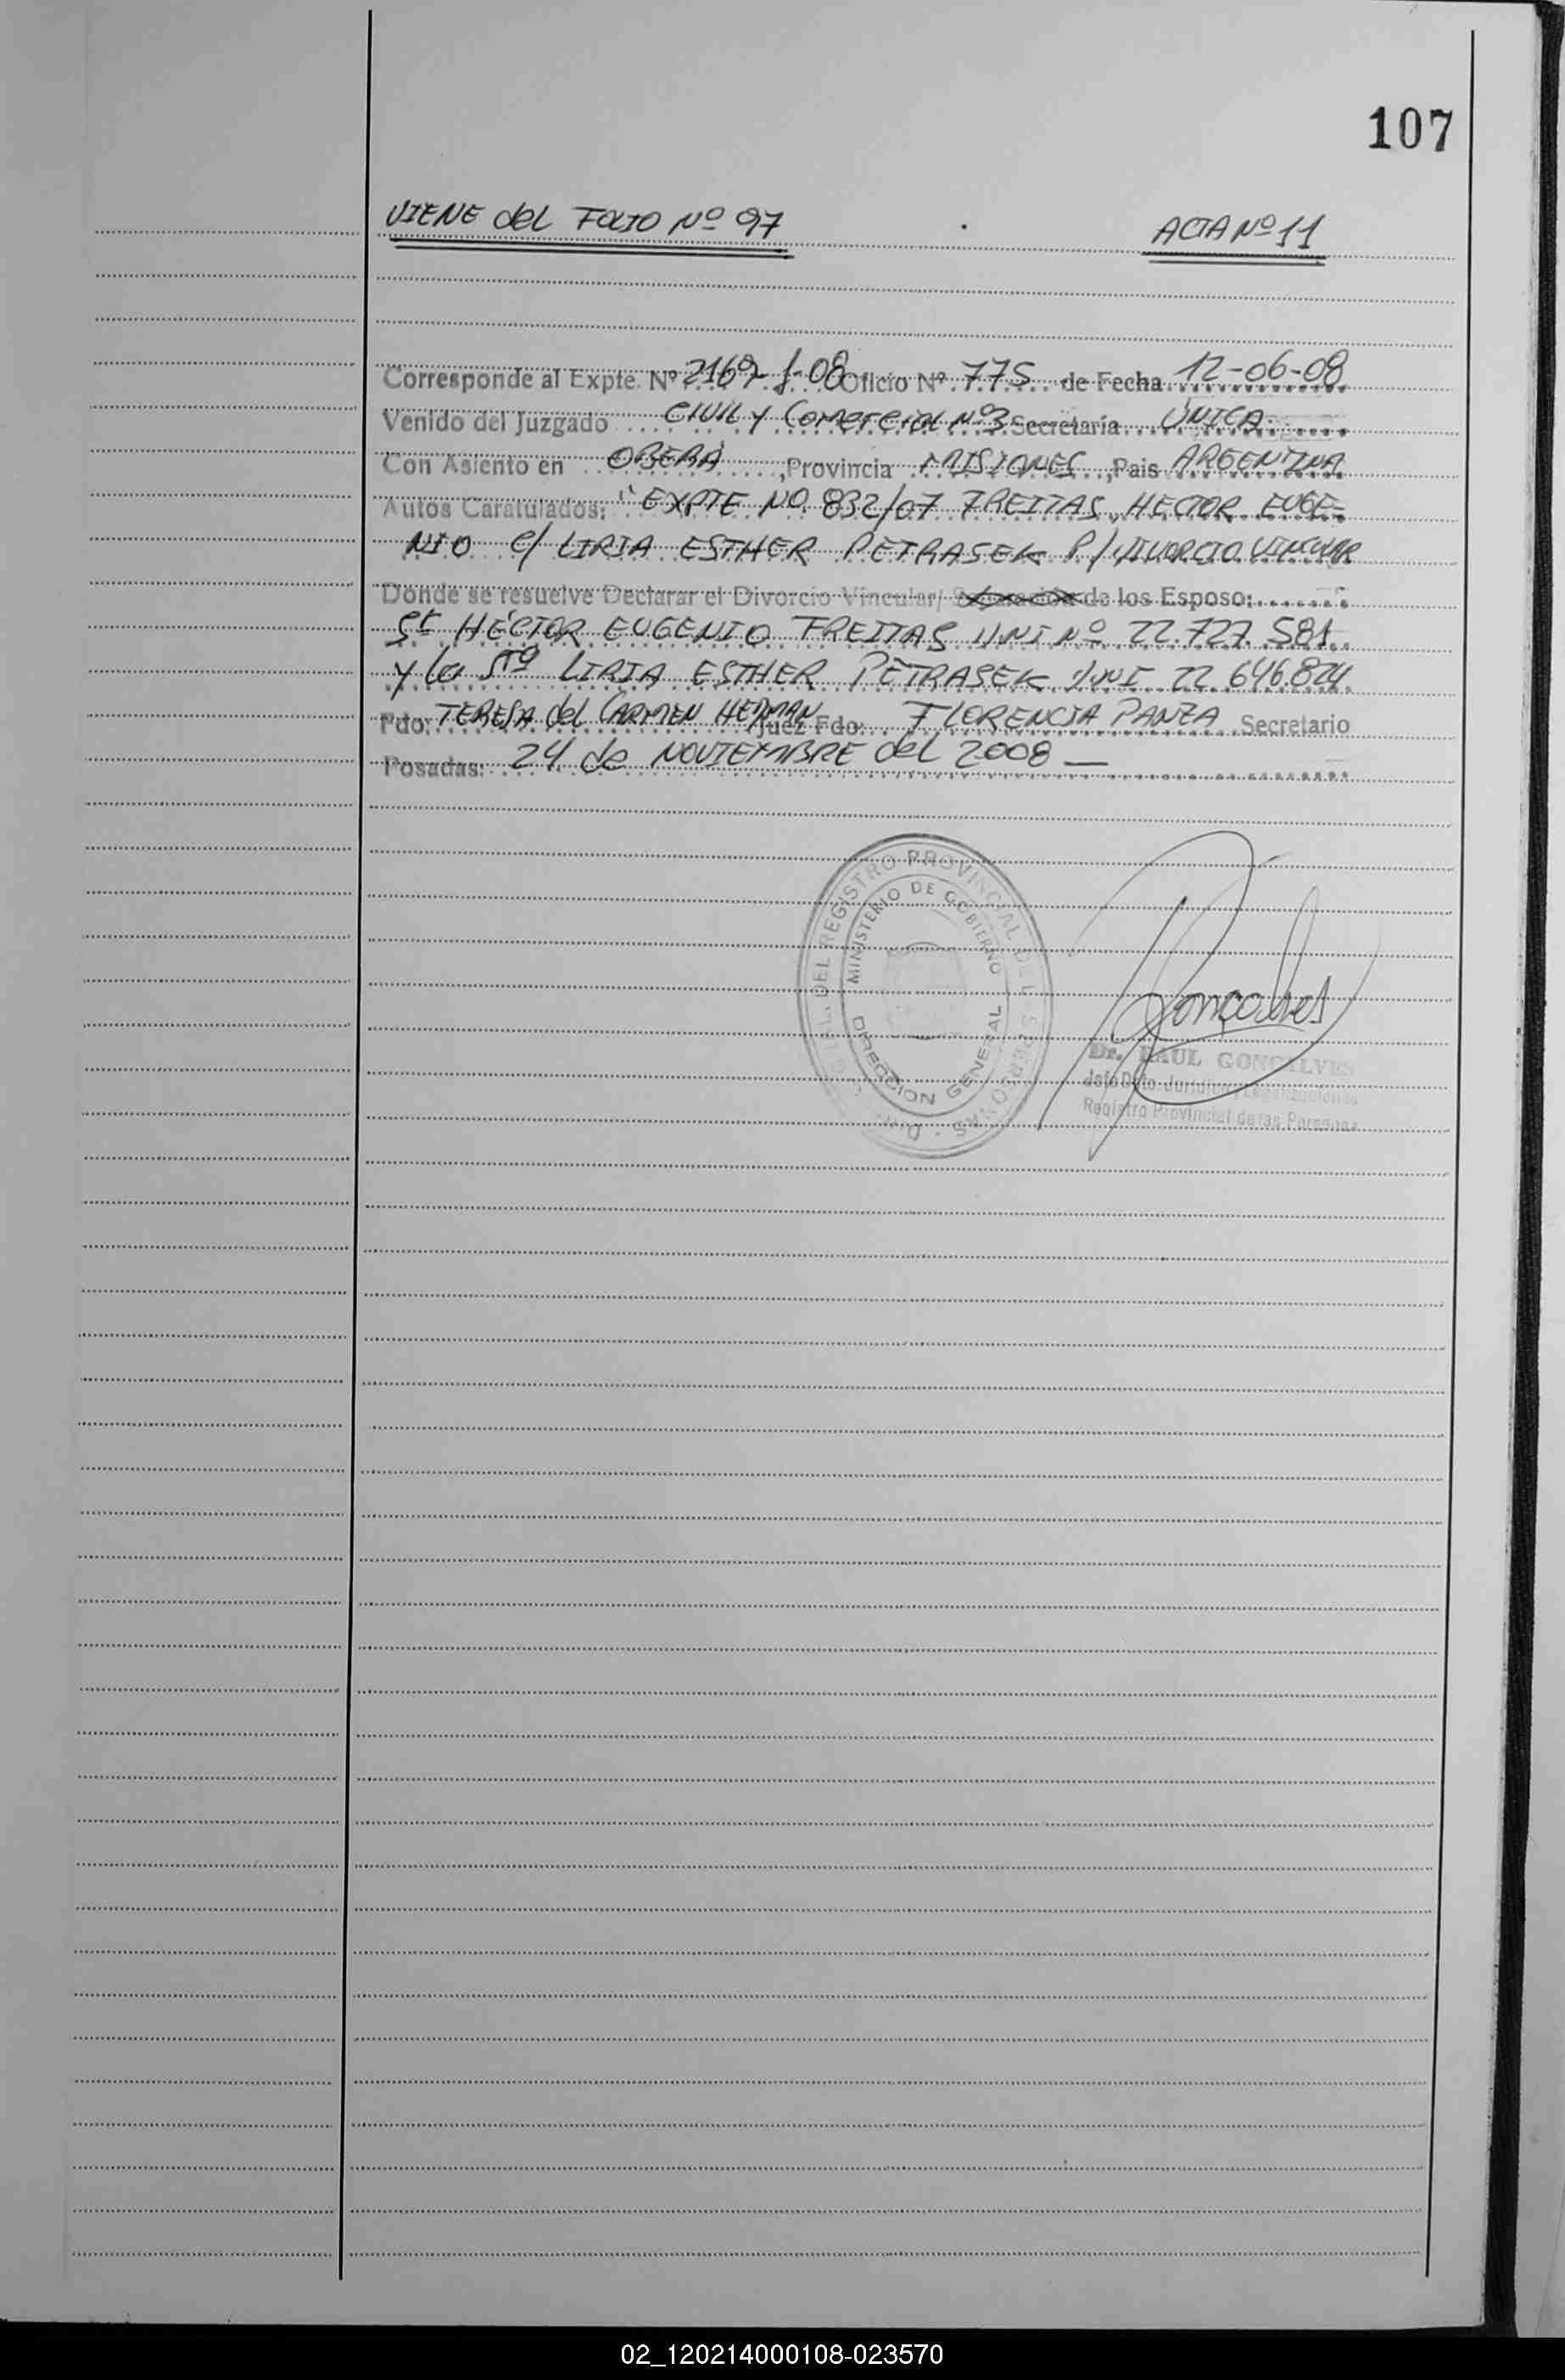 107
VIENE del FOLIO Nº 97 ACTA Nº 11
Corresponde al Expte. Nº 2169-f-08 Oficio Nº 775 de Fecha 12-06-08
Venido del Juzgado CIVIL y Comercial Nº3 Secretaría ÚNICA
Con Asiento en OBERÁ, Provincia MISIONES, Pais ARGENTINA
Autos Caratulados: "EXPTE Nº 832/07 FREITAS, HECTOR EUGE-
NIO c/ LIRIA ESTHER PETRASEK P/ DIVORCIO VINCULAR
Donde se resuelve Declarar el Divorcio Vincular/ Separación de los Esposo:
Sr. HÉCTOR EUGENIO FREITAS DNI Nº 22.727.581
y la Sra LIRIA ESTHER PETRASEK DNI 22.646.824
Fdo: TERESA del CARMEN HEDMAN Juez Fdo: FLORENCIA PANZA Secretario
Posadas: 24 de NOVIEMBRE del 2008 —
DEL REGISTRO PROVINCIAL DE LAS PERSONAS - DIR.
MINISTERIO DE GOBIERNO
DIRECCION GENERAL
Goncalves
Dr. RAUL GONCALVES
Jefe Dpto. Jurídico y
Registro Provincial de las Personas
02_120214000108-023570